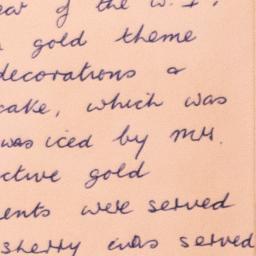 of the W.I.
gold theme
decorations &
cake, which was
was iced by Mrs.
gold
were served
sherry was served